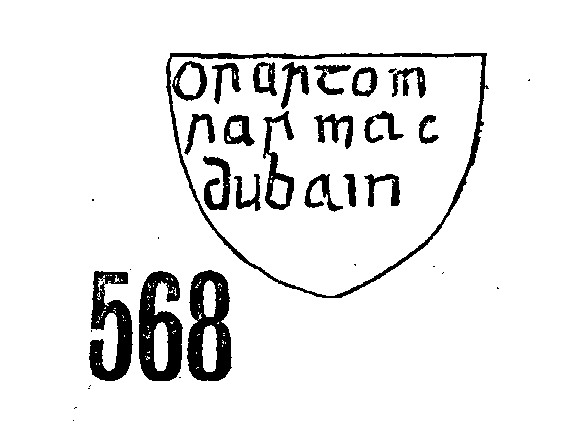 orartom
rar mac
dubain
568